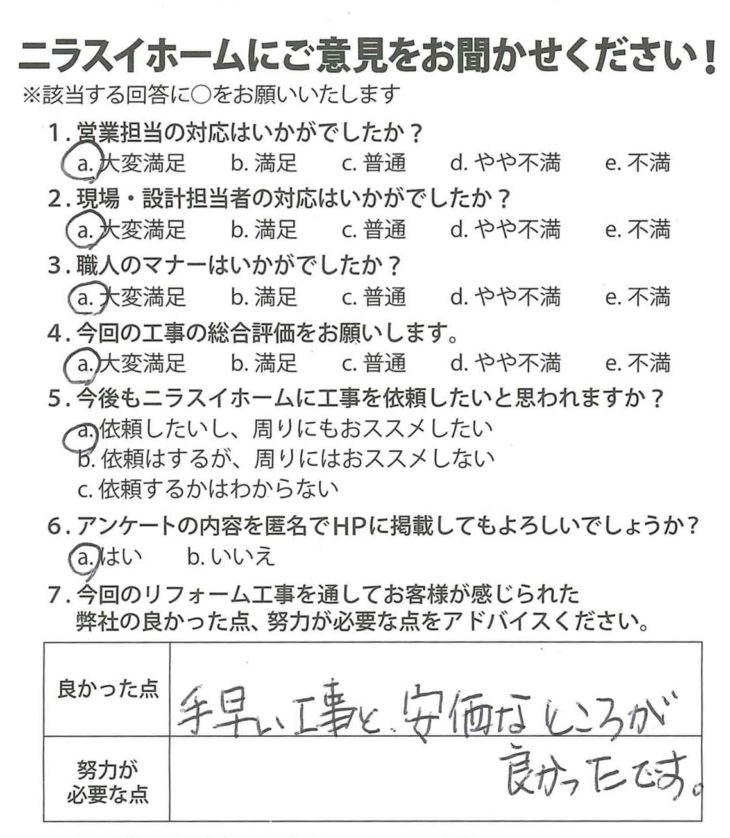 ニラスイホームにご意見をお聞かせください!
※該当する回答に○をお願いいたします
1. 営業担当の対応はいかがでしたか?
a. 大変満足 b. 満足 c. 普通 d. やや不満 e. 不満
2. 現場・設計担当者の対応はいかがでしたか?
a. 大変満足 b. 満足 c. 普通 d. やや不満 e. 不満
3. 職人のマナーはいかがでしたか?
a. 大変満足 b. 満足 c. 普通 d. やや不満 e. 不満
4. 今回の工事の総合評価をお願いします。
a. 大変満足 b. 満足 c. 普通 d. やや不満 e. 不満
5. 今後もニラスイホームに工事を依頼したいと思われますか?
a. 依頼したいし、周りにもおススメしたい
b. 依頼はするが、周りにはおススメしない
c. 依頼するかはわからない
6. アンケートの内容を匿名でHPに掲載してもよろしいでしょうか?
a. はい b. いいえ
7. 今回のリフォーム工事を通してお客様が感じられた
弊社の良かった点、努力が必要な点をアドバイスください。
良かった点
手早い工事と、安価なところが
良かったです。
努力が
必要な点